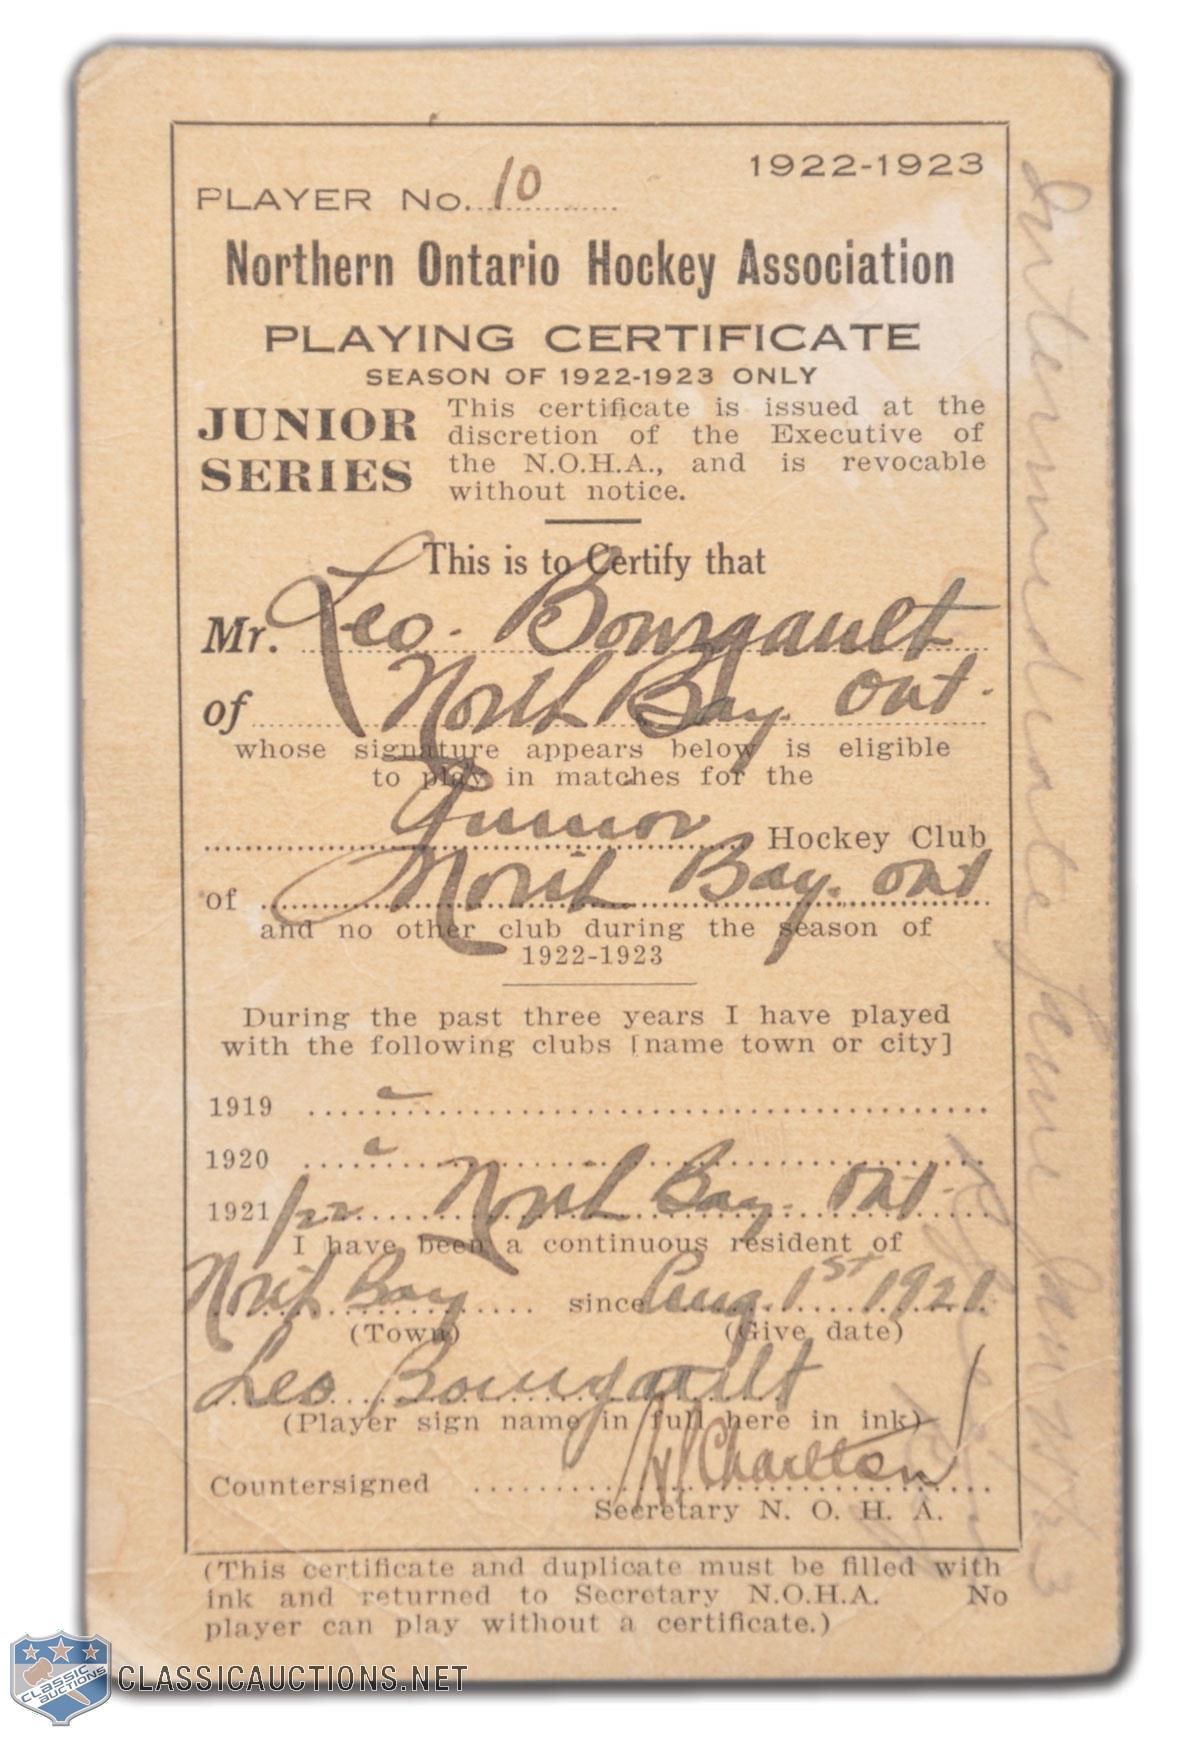 1922-1923
PLAYER No. 10
Northern Ontario Hockey Association
PLAYING CERTIFICATE
SEASON OF 1922-1923 ONLY
JUNIOR SERIES
This certificate is issued at the
discretion of the Executive of
the N.O.H.A., and is revocable
without notice.
This is to Certify that
Mr. Leo. Bourgault
of North Bay. Ont.
whose signature appears below is eligible
to play in matches for the
Junior Hockey Club
of North Bay. Ont
and no other club during the season of
1922-1923
During the past three years I have played
with the following clubs [name town or city]
1919
1920
1921/22 North Bay. Ont.
I have been a continuous resident of
North Bay since Aug. 1st 1921
(Town) (Give date)
Leo Bourgault
(Player sign name in full here in ink)
Countersigned Charlton
Secretary N. O. H. A.
(This certificate and duplicate must be filled with
ink and returned to Secretary N.O.H.A. No
player can play without a certificate.)
Intermediate Game Jan
CLASSIC AUCTIONS
CLASSICAUCTIONS.NET